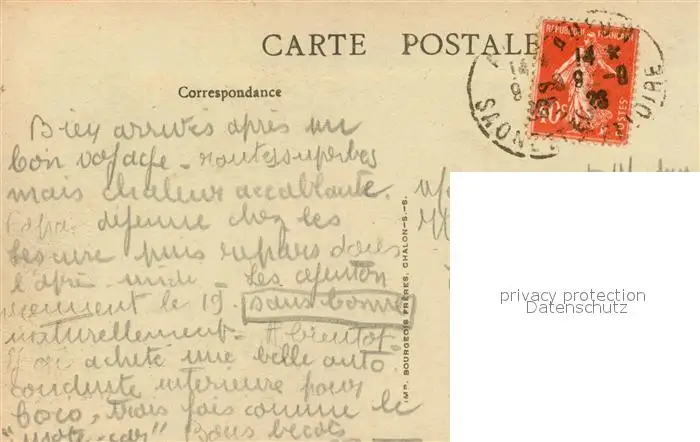 CARTE POSTALE
Correspondance
REPUBLIQUE FRANÇAISE
14 *
9 - 9
23
10c POSTES
SAONE LOIRE
Bien arrivés après un
bon voyage - routes superbes
mais chaleur accablante.
Papa déjeune chez les
puis repars dans
l'après midi Les
viennent le 19. sans bonne
naturellement - A bientôt
acheté une belle auto
conduite intérieure pour
Coco, trois fois comme le
Bons bécots
IMP. BOURGEOIS FRÈRES, CHALON-S.-S.
privacy protection
Datenschutz